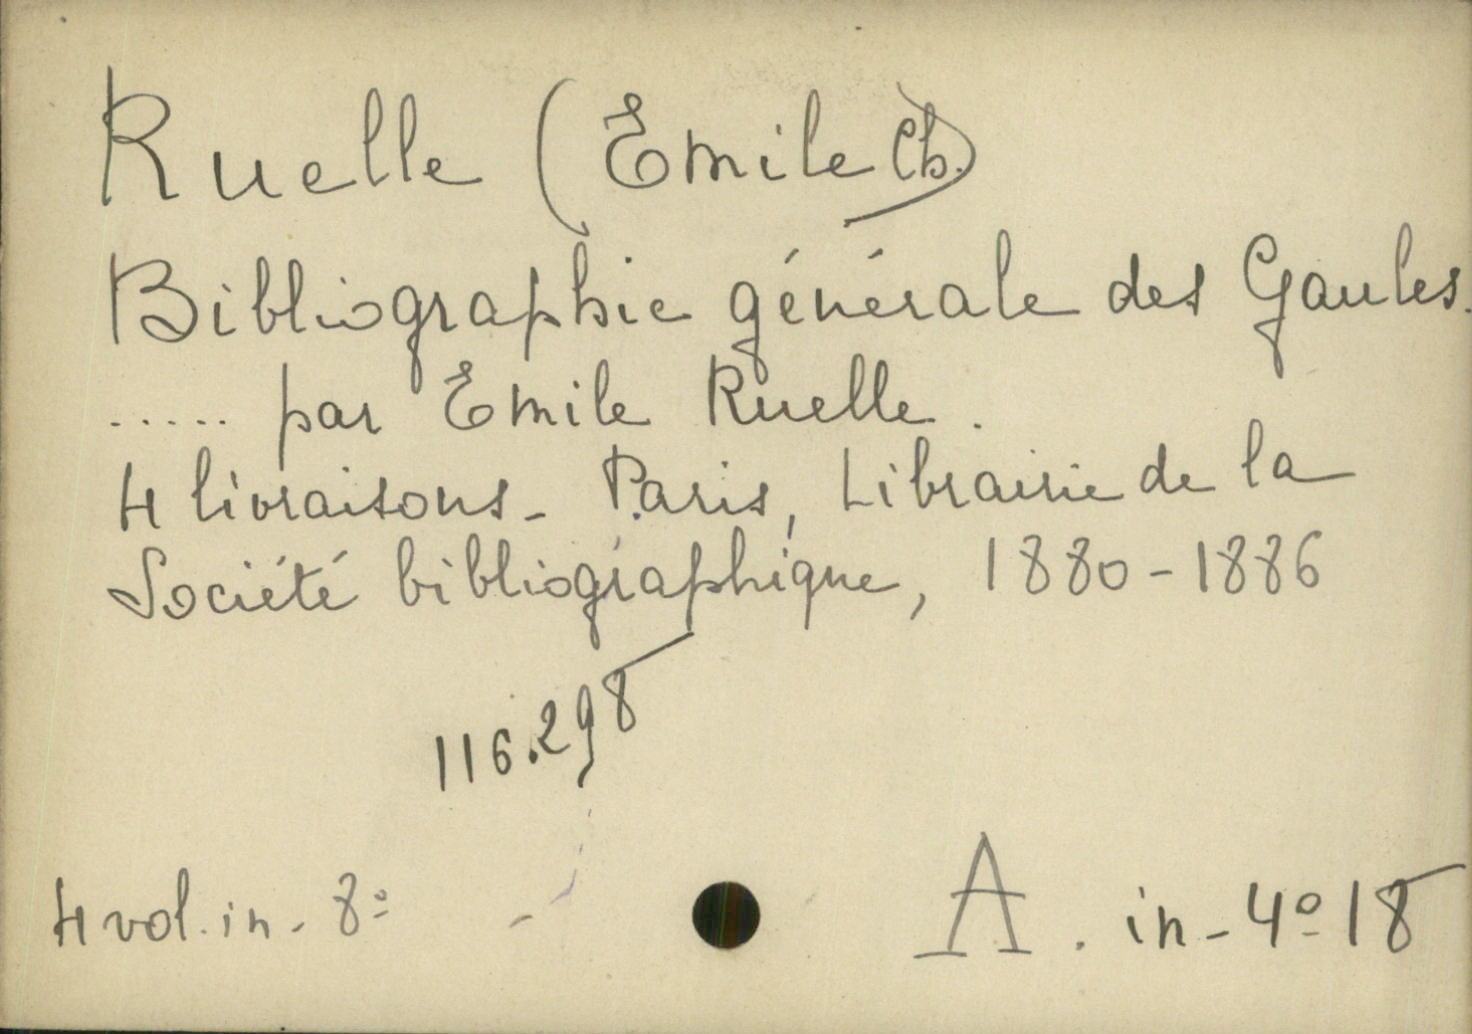 Ruelle (Emile Ch.)
Bibliographie générale des Gaules.
...... par Emile Ruelle.
4 livraisons - Paris, Librairie de la
Société bibliographique, 1880-1886
116.298
4 vol. in-8º
A. in-4º 18